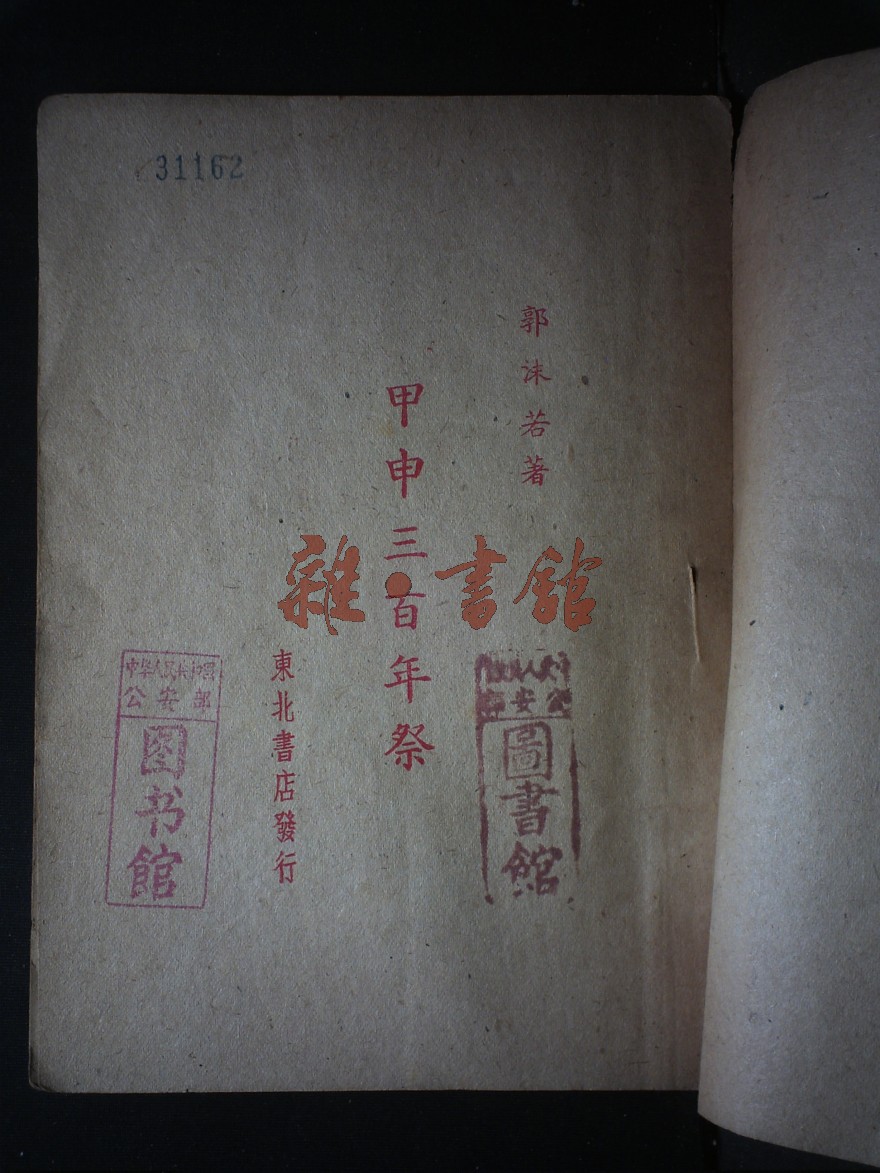 31162
郭沫若著
甲申三百年祭
雜·書館
東北書店發行
圖書館
中华人民共和国
公安部
图书館